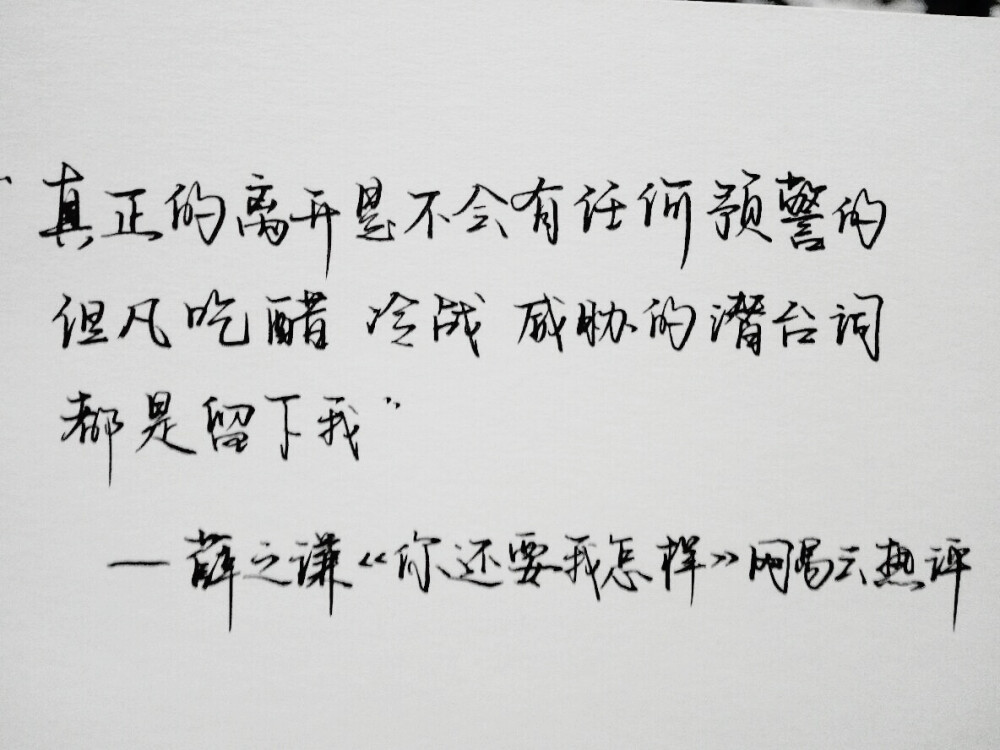 "真正的离开是不会有任何预警的
但凡吃醋 冷战 威胁的潜台词
都是留下我"
—薛之谦《你还要我怎样》网易云热评